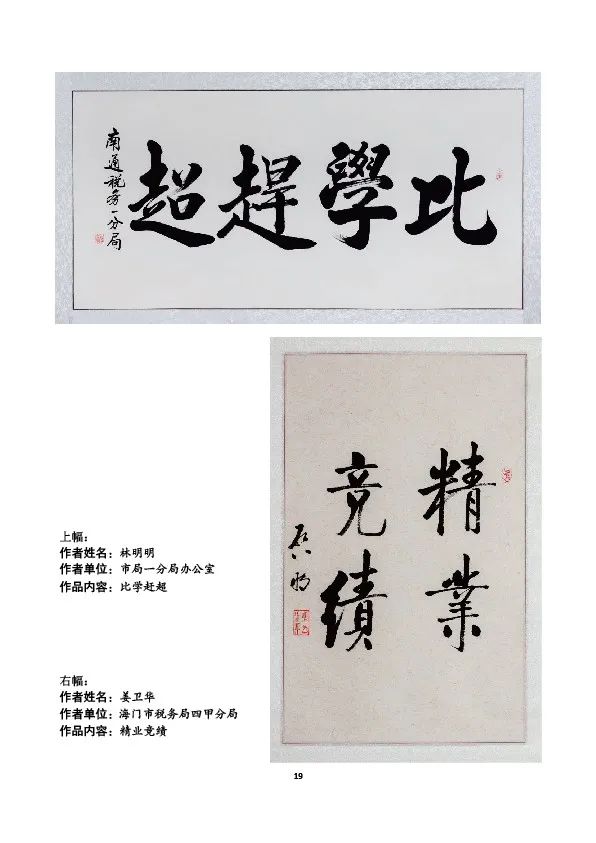 比學趕超
南通税务一分局
精業
竞績
上幅：
作者姓名：林明明
作者单位：市局一分局办公室
作品内容：比学赶超
右幅：
作者姓名：姜卫华
作者单位：海门市税务局四甲分局
作品内容：精业竞绩
19